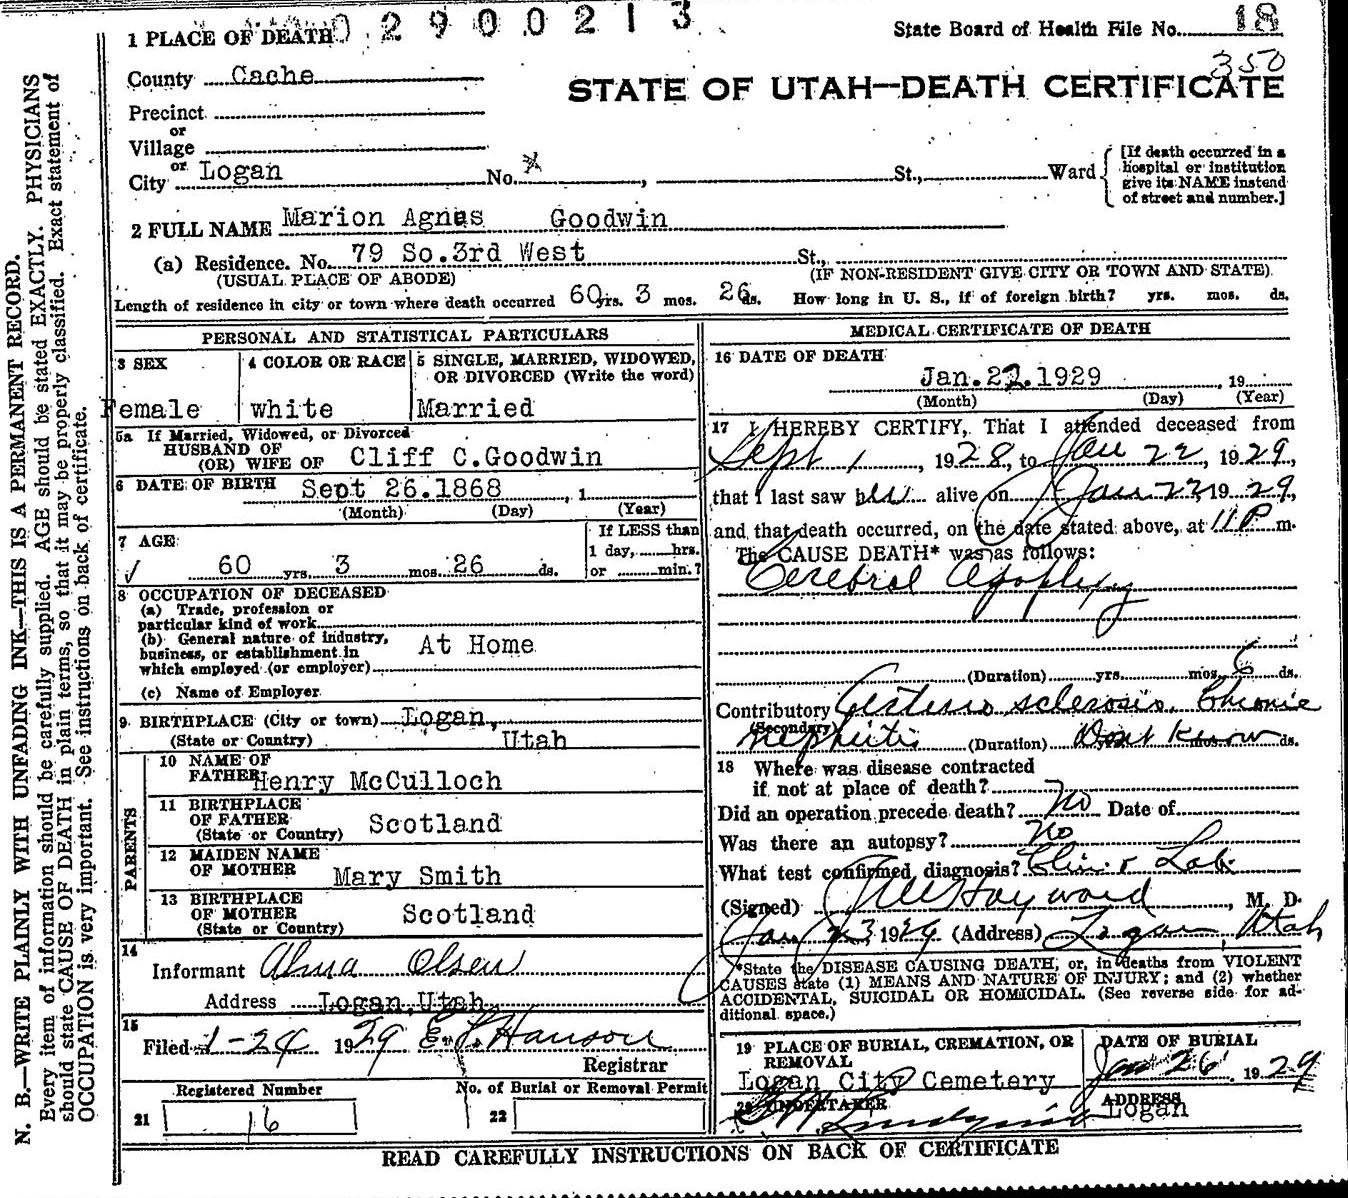 0 2 9 0 0 2 1 3
State Board of Health File No. 18
350
1 PLACE OF DEATH
County Cache
STATE OF UTAH—DEATH CERTIFICATE
Precinct
or
Village
or
City Logan No. x , St., Ward
[If death occurred in a
hospital or institution
give its NAME instead
of street and number.]
2 FULL NAME Marion Agnes Goodwin
(a) Residence. No. 79 So.3rd West St.,
(USUAL PLACE OF ABODE) (IF NON-RESIDENT GIVE CITY OR TOWN AND STATE)
Length of residence in city or town where death occurred 60 yrs. 3 mos. 26 ds. How long in U. S., if of foreign birth? yrs. mos. ds.
PERSONAL AND STATISTICAL PARTICULARS
3 SEX
Female
4 COLOR OR RACE
white
5 SINGLE, MARRIED, WIDOWED,
OR DIVORCED (Write the word)
Married
5a If Married, Widowed, or Divorced
HUSBAND OF
(OR) WIFE OF Cliff C.Goodwin
6 DATE OF BIRTH Sept 26.1868 , 1
(Month) (Day) (Year)
7 AGE
✓ 60 yrs. 3 mos. 26 ds.
If LESS than
1 day, hrs.
or min.?
8 OCCUPATION OF DECEASED
(a) Trade, profession or
particular kind of work
(b) General nature of industry,
business, or establishment in
which employed (or employer)
At Home
(c) Name of Employer
9 BIRTHPLACE (City or town) Logan,
(State or Country) Utah
PARENTS
10 NAME OF
FATHER Henry McCulloch
11 BIRTHPLACE
OF FATHER
(State or Country) Scotland
12 MAIDEN NAME
OF MOTHER Mary Smith
13 BIRTHPLACE
OF MOTHER
(State or Country) Scotland
14
Informant Alma Olsen
Address Logan,Utah
15
Filed 1-24 1929 E. Hanson
Registrar
Registered Number
21 16
No. of Burial or Removal Permit
22
MEDICAL CERTIFICATE OF DEATH
16 DATE OF DEATH
Jan.22.1929 , 19
(Month) (Day) (Year)
17 I HEREBY CERTIFY, That I attended deceased from
Sept 1 , 1928, to Jan 22, 1929,
that I last saw her alive on Jan 22 1929,
and that death occurred, on the date stated above, at 11 P m.
The CAUSE DEATH* was as follows:
Cerebral Apoplexy
(Duration) yrs. mos. 6 ds.
Contributory Arterio sclerosis. Chronic
(Secondary)
nephritis (Duration) Dont know mos. ds.
18 Where was disease contracted
if not at place of death?
Did an operation precede death? no Date of
Was there an autopsy? no
What test confirmed diagnosis? Clin & Lab
(Signed) Hayward, M. D.
Jan 23 1929 (Address) Logan, Utah
*State the DISEASE CAUSING DEATH, or, in deaths from VIOLENT
CAUSES state (1) MEANS AND NATURE OF INJURY; and (2) whether
ACCIDENTAL, SUICIDAL OR HOMICIDAL. (See reverse side for ad-
ditional space.)
19 PLACE OF BURIAL, CREMATION, OR
REMOVAL
Logan City Cemetery
DATE OF BURIAL
Jan 26 . 1929
20 UNDERTAKER
ADDRESS
Logan
READ CAREFULLY INSTRUCTIONS ON BACK OF CERTIFICATE
N. B.—WRITE PLAINLY WITH UNFADING INK—THIS IS A PERMANENT RECORD.
Every item of information should be carefully supplied. AGE should be stated EXACTLY. PHYSICIANS
should state CAUSE OF DEATH in plain terms, so that it may be properly classified. Exact statement of
OCCUPATION is very important. See instructions on back of certificate.